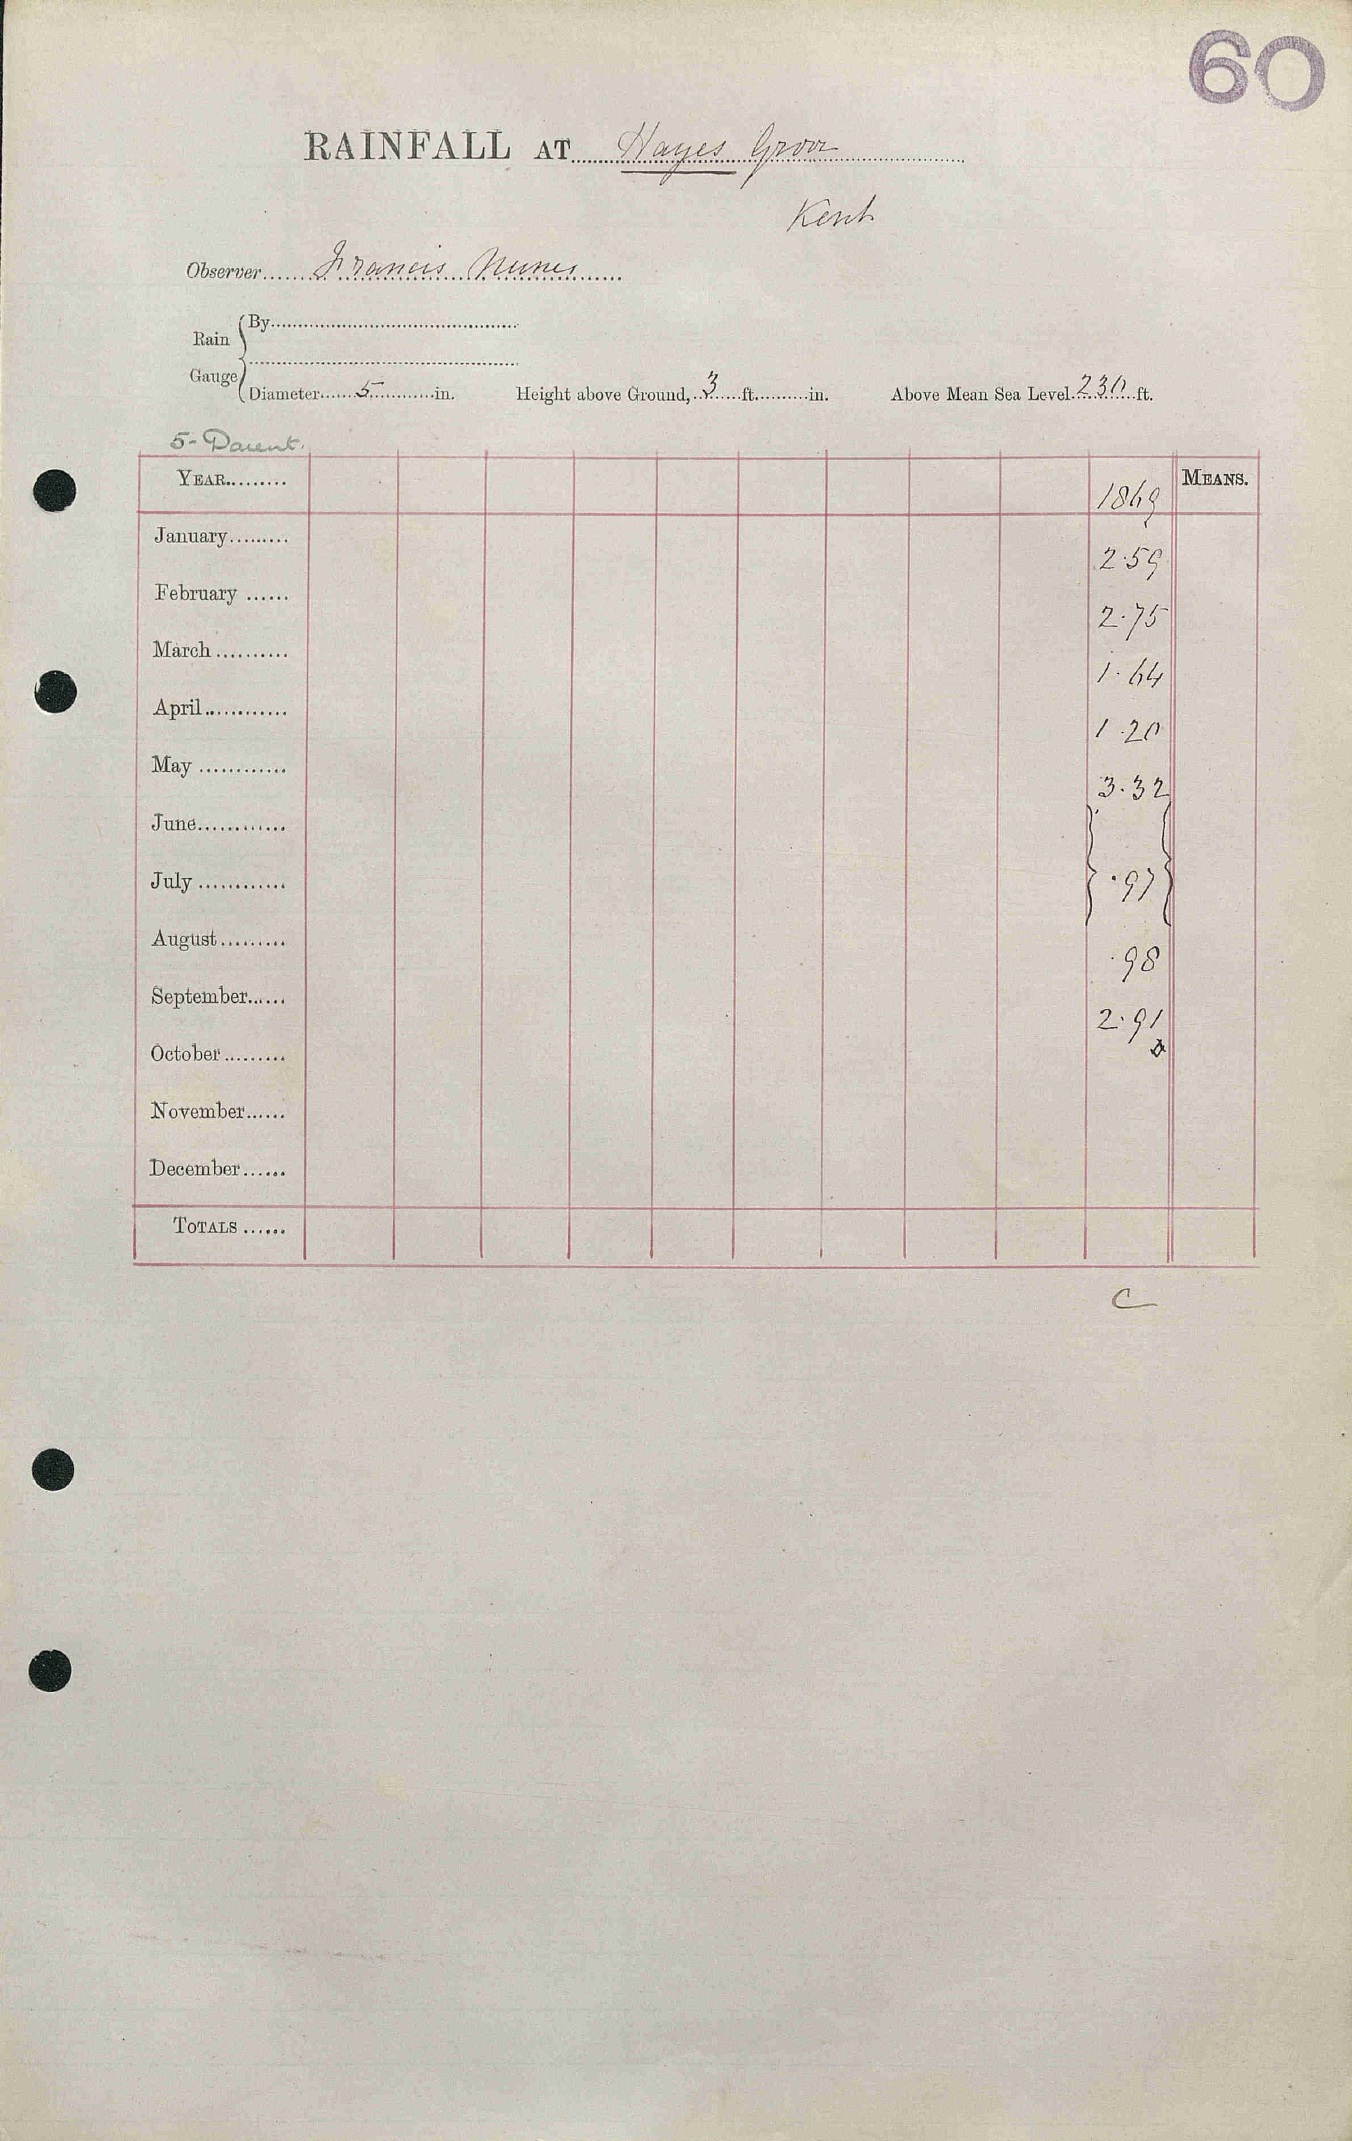 60
RAINFALL AT Hayes Grove
Kent
Observer Francis Nunes
Rain Gauge
By
Diameter 5 in. Height above Ground, 3 ft. in. Above Mean Sea Level 230 ft.
5- Darent.
YEAR 1869 MEANS.
January 2.59
February 2.75
March 1.64
April 1.20
May 3.32
June
July .97
August .98
September 2.91
October
November
December
TOTALS
C